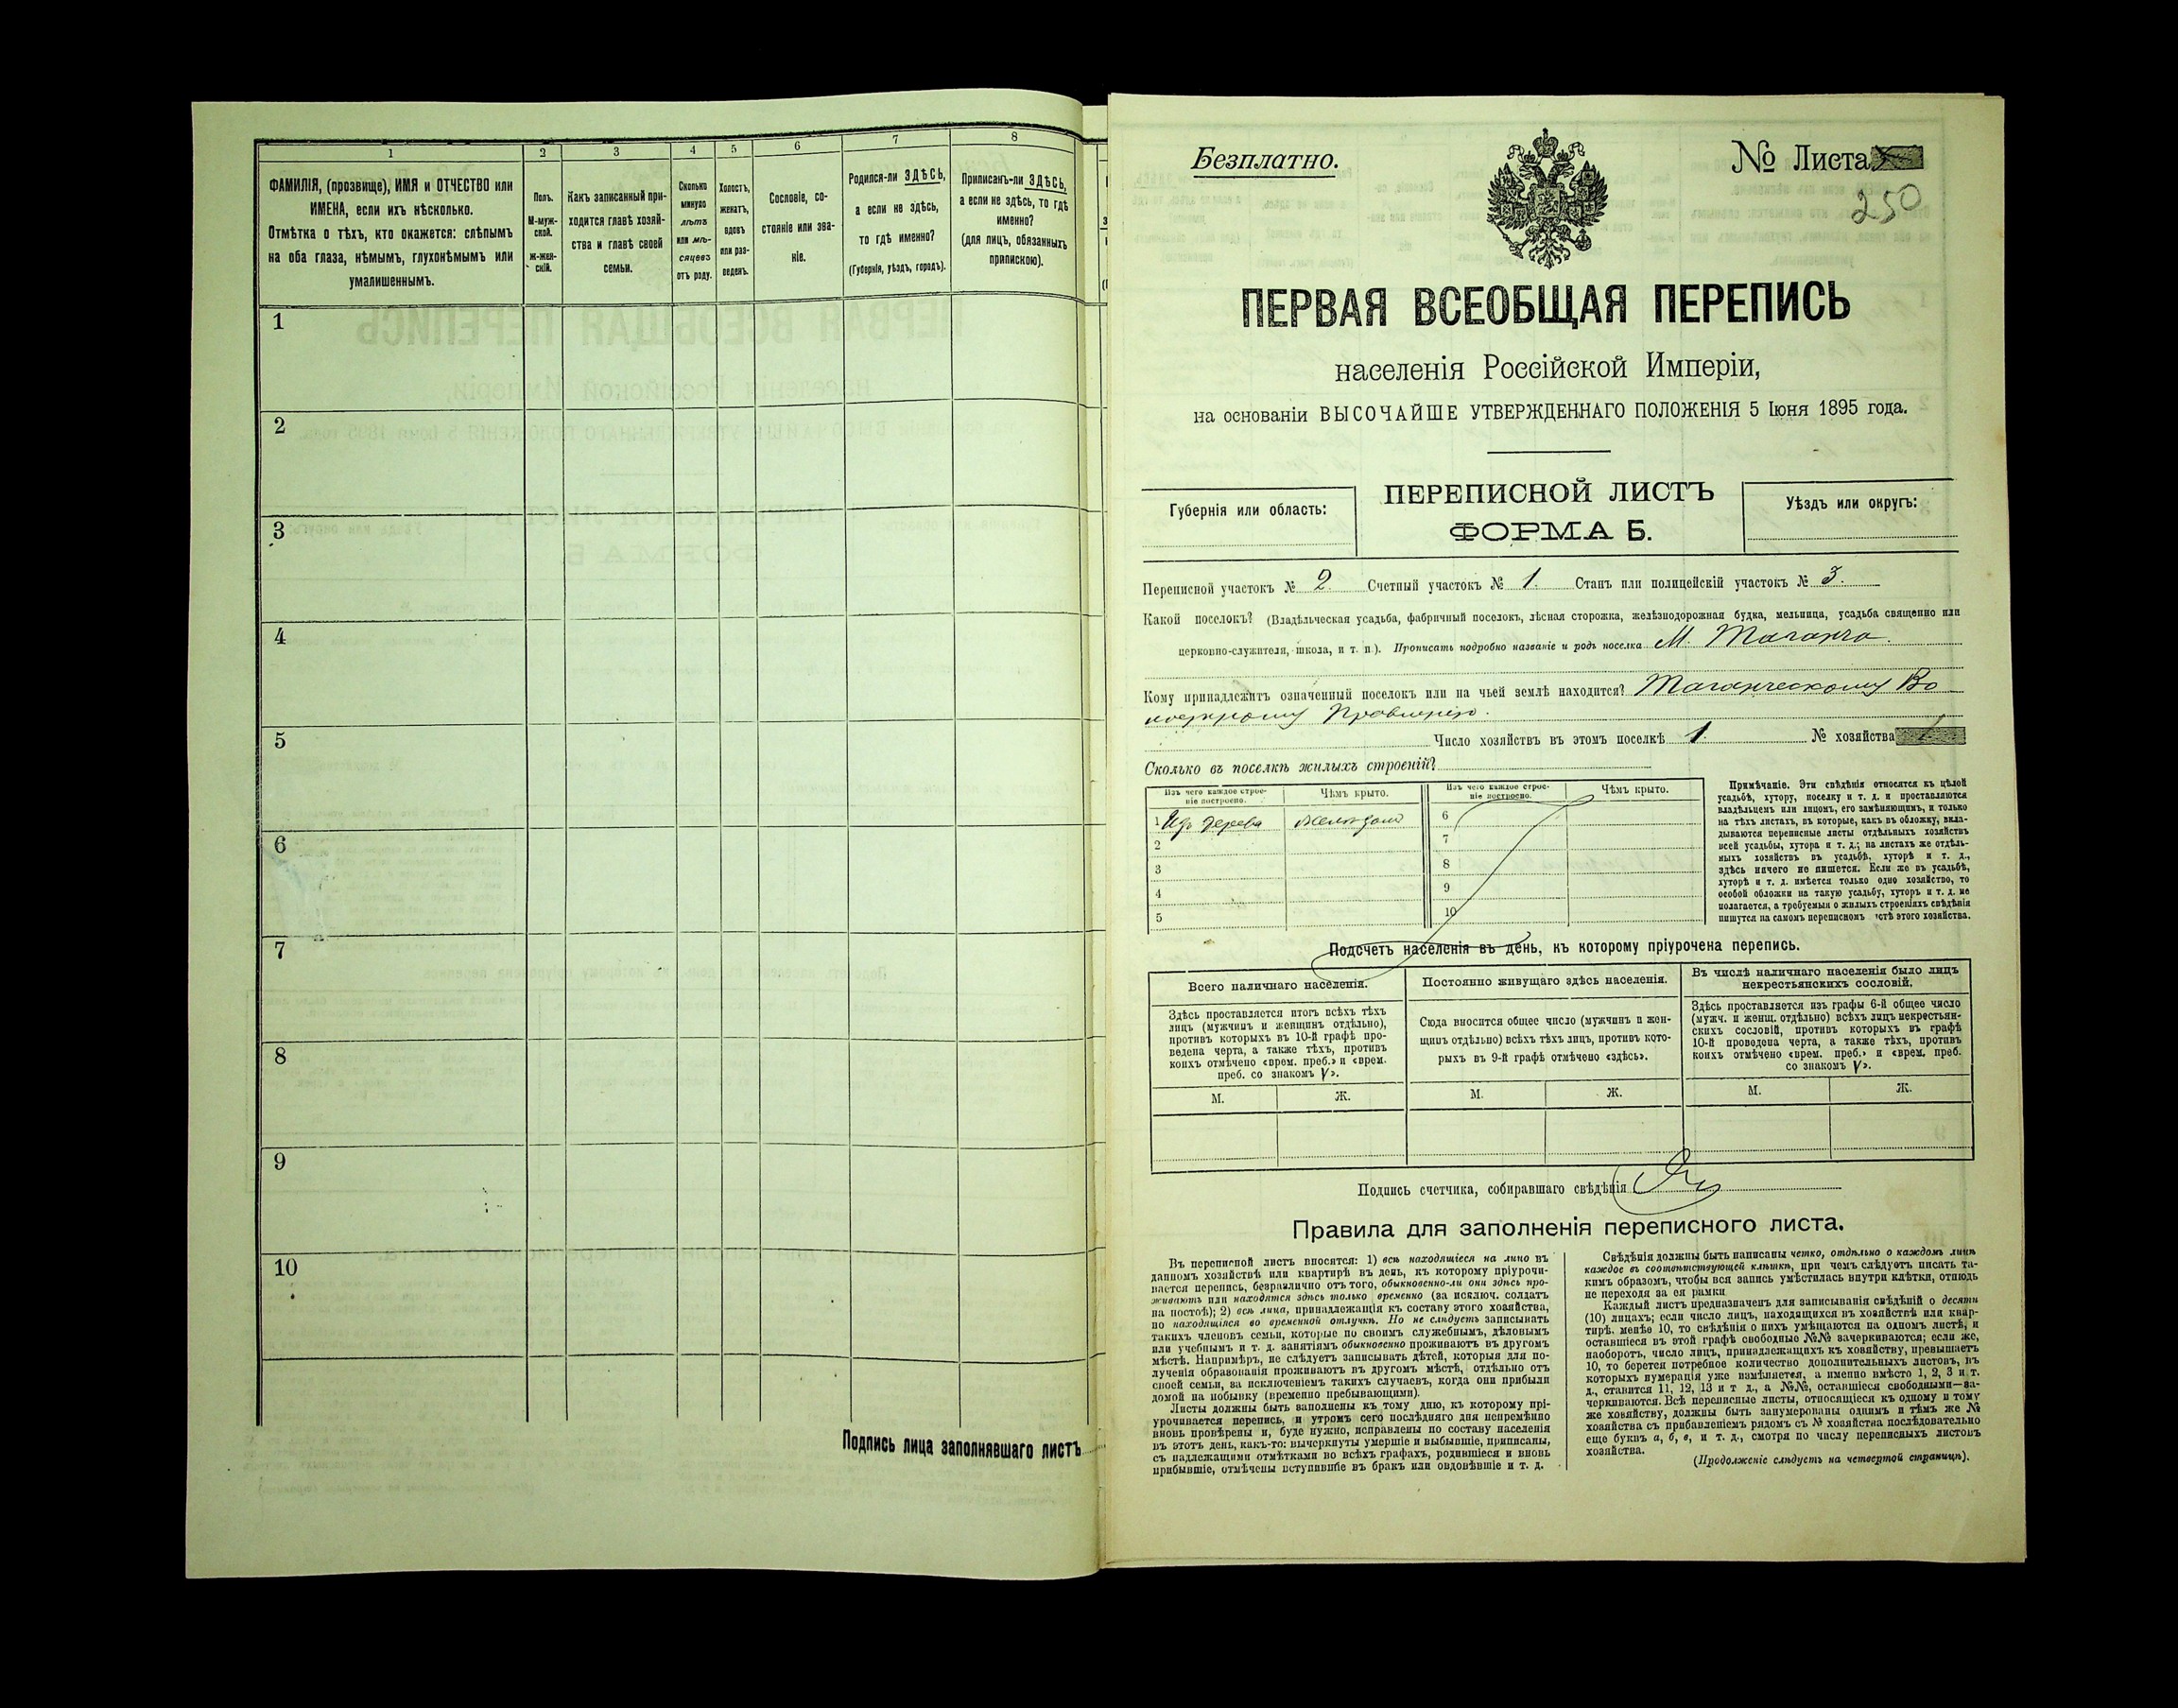 1
2
3
4
5
6
7
8
ФАМИЛІЯ, (прозвище), ИМЯ и ОТЧЕСТВО или
ИМЕНА, если ихъ нѣсколько.
Отмѣтка о тѣхъ, кто окажется: слѣпымъ
на оба глаза, нѣмымъ, глухонѣмымъ или
умалишеннымъ.
Полъ.
М-муж-
ской.
Ж-жен-
скій.
Какъ записанный при-
ходится главѣ хозяй-
ства и главѣ своей
семьи.
Сколько
минуло
лѣтъ
или мѣ-
сяцевъ
отъ роду.
Холостъ,
женатъ,
вдовъ
или раз-
веденъ.
Сословіе, со-
стояніе или зва-
ніе.
Родился-ли ЗДѢСЬ,
а если не здѣсь,
то гдѣ именно?
(Губернія, уѣздъ, городъ).
Приписанъ-ли ЗДѢСЬ,
а если не здѣсь, то гдѣ
именно?
(для лицъ, обязанныхъ
припискою).
1
2
3
4
5
6
7
8
9
10
Подпись лица заполнявшаго листъ
Безплатно.
№ Листа
250
ПЕРВАЯ ВСЕОБЩАЯ ПЕРЕПИСЬ
населенія Россійской Имперіи,
на основаніи ВЫСОЧАЙШЕ УТВЕРЖДЕННАГО ПОЛОЖЕНІЯ 5 Іюня 1895 года.
Губернія или область:
ПЕРЕПИСНОЙ ЛИСТЪ
ФОРМА Б.
Уѣздъ или округъ:
Переписной участокъ № 2. Счетный участокъ № 1. Станъ или полицейскій участокъ № 3.
Какой поселокъ? (Владѣльческая усадьба, фабричный поселокъ, лѣсная сторожка, желѣзнодорожная будка, мельница, усадьба священно или
церковно-служителя, школа, и т. п.). Прописать подробно названіе и родъ поселка М. Таганча.
Кому принадлежитъ означенный поселокъ или на чьей землѣ находится? Таганческому Во
лостному Правленію.
Число хозяйствъ въ этомъ поселкѣ 1. № хозяйства 1
Сколько въ поселкѣ жилыхъ строеній?
Изъ чего каждое строе-
ніе построено.
Чѣмъ крыто.
Изъ чего каждое строе-
ніе построено.
Чѣмъ крыто.
1 Изъ дерева
2
3
4
5
6
7
8
9
10
Примѣчаніе. Эти свѣдѣнія относятся къ цѣлой
усадьбѣ, хутору, поселку и т. д. и проставляются
владѣльцемъ или лицомъ, его замѣняющимъ, и только
на тѣхъ листахъ, въ которые, какъ въ обложку, вкла-
дываются переписные листы отдѣльныхъ хозяйствъ
всей усадьбы, хутора и т. д.; на листахъ же отдѣль-
ныхъ хозяйствъ въ усадьбѣ, хуторѣ и т. д.,
здѣсь ничего не пишется. Если же въ усадьбѣ,
хуторѣ и т. д. имѣется только одно хозяйство, то
особой обложки на такую усадьбу, хуторъ и т. д. не
полагается, а требуемыя о жилыхъ строеніяхъ свѣдѣнія
пишутся на самомъ переписномъ стѣ этого хозяйства.
Подсчетъ населенія въ день, къ которому пріурочена перепись.
Всего наличнаго населенія.
Постоянно живущаго здѣсь населенія.
Въ числѣ наличнаго населенія было лицъ
некрестьянскихъ сословій.
Здѣсь проставляется итогъ всѣхъ тѣхъ
лицъ (мужчинъ и женщинъ отдѣльно),
противъ которыхъ въ 10-й графѣ про-
ведена черта, а также тѣхъ, противъ
коихъ отмѣчено «врем. преб.» и «врем.
преб. со знакомъ V».
Сюда вносится общее число (мужчинъ и жен-
щинъ отдѣльно) всѣхъ тѣхъ лицъ, противъ кото-
рыхъ въ 9-й графѣ отмѣчено «здѣсь».
Здѣсь проставляется изъ графы 6-й общее число
(мужч. и женщ. отдѣльно) всѣхъ лицъ некрестьян-
скихъ сословій, противъ которыхъ въ графѣ
10-й проведена черта, а также тѣхъ, противъ
коихъ отмѣчено «врем. преб.» и «врем. преб.
со знакомъ V».
М.
Ж.
М.
Ж.
М.
Ж.
Подпись счетчика, собиравшаго свѣдѣнія
Правила для заполненія переписного листа.
Въ переписной листъ вносятся: 1) всѣ находящіеся на лицо въ
данномъ хозяйствѣ или квартирѣ въ день, къ которому пріурочи-
вается перепись, безразлично отъ того, обыкновенно-ли они здѣсь про-
живаютъ или находятся здѣсь только временно (за исключ. солдатъ
на постоѣ); 2) всѣ лица, принадлежащія къ составу этого хозяйства,
но находящіяся во временной отлучкѣ. Но не слѣдуетъ записывать
такихъ членовъ семьи, которые по своимъ служебнымъ, дѣловымъ
или учебнымъ и т. д. занятіямъ обыкновенно проживаютъ въ другомъ
мѣстѣ. Напримѣръ, не слѣдуетъ записывать дѣтей, которыя для по-
лученія образованія проживаютъ въ другомъ мѣстѣ, отдѣльно отъ
своей семьи, за исключеніемъ такихъ случаевъ, когда они прибыли
домой на побывку (временно пребывающими).
Листы должны быть заполнены къ тому дню, къ которому прі-
урочивается перепись, и утромъ сего послѣдняго дня непремѣнно
вновь провѣрены и, буде нужно, исправлены по составу населенія
въ этотъ день, какъ-то: вычеркнуты умершіе и выбывшіе, приписаны,
съ надлежащими отмѣтками во всѣхъ графахъ, родившіеся и вновь
прибывшіе, отмѣчены вступившіе въ бракъ или овдовѣвшіе и т. д.
Свѣдѣнія должны быть написаны четко, отдѣльно о каждомъ лицѣ
каждое въ соотвѣтствующей клѣткѣ, при чемъ слѣдуетъ писать та-
кимъ образомъ, чтобы вся запись умѣстилась внутри клѣтки, отнюдь
не переходя за ея рамки
Каждый листъ предназначенъ для записыванія свѣдѣній о десяти
(10) лицахъ; если число лицъ, находящихся въ хозяйствѣ или квар-
тирѣ менѣе 10, то свѣдѣнія о нихъ умѣщаются на одномъ листѣ, и
оставшіеся въ этой графѣ свободные №№ зачеркиваются; если же,
наоборотъ, число лицъ, принадлежащихъ къ хозяйству, превышаетъ
10, то берется потребное количество дополнительныхъ листовъ, въ
которыхъ нумерація уже измѣняется, а именно вмѣсто 1, 2, 3 и т.
д., ставится 11, 12, 13 и т д., а №№, оставшіеся свободными—за-
черкиваются. Всѣ переписные листы, относящіеся къ одному и тому
же хозяйству, должны быть занумерованы однимъ и тѣмъ же №
хозяйства съ прибавленіемъ рядомъ съ № хозяйства послѣдовательно
еще буквъ а, б, в, и т. д., смотря по числу переписныхъ листовъ
хозяйства.
(Продолженіе слѣдуетъ на четвертой страницѣ).